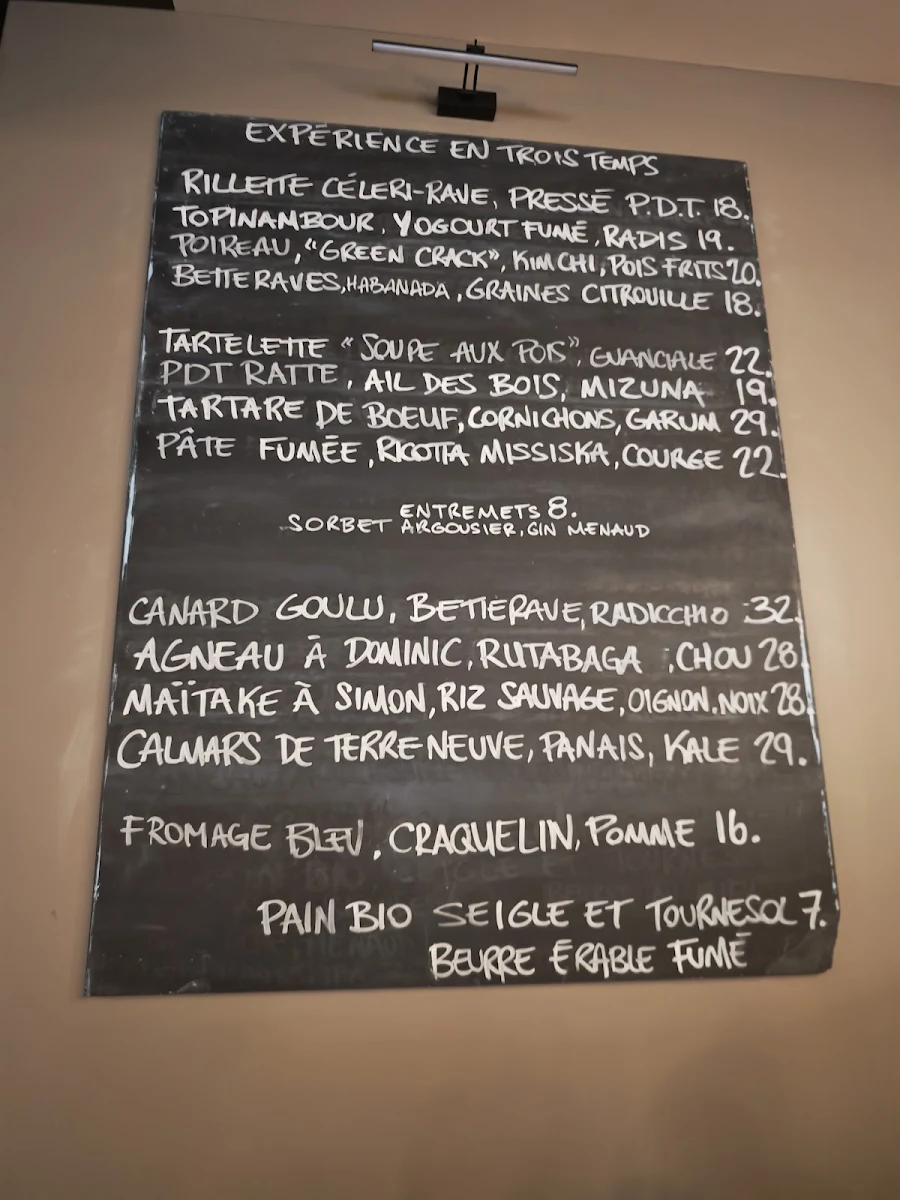 EXPÉRIENCE EN TROIS TEMPS
RILLETTE CÉLERI-RAVE, PRESSÉ P.D.T. 18.
TOPINAMBOUR, YOGOURT FUMÉ, RADIS 19.
POIREAU, "GREEN CRACK", KIMCHI, POIS FRITS 20.
BETTERAVES, HABANADA, GRAINES CITROUILLE 18.
TARTELETTE "SOUPE AUX POIS", GUANCIALE 22.
PDT RATTE, AIL DES BOIS, MIZUNA 19.
TARTARE DE BOEUF, CORNICHONS, GARUM 29.
PÂTE FUMÉE, RICOTTA MISSISKA, COURGE 22.
ENTREMETS 8.
SORBET ARGOUSIER, GIN MENAUD
CANARD GOULU, BETTERAVE, RADICCHIO 32.
AGNEAU À DOMINIC, RUTABAGA, CHOU 28.
MAÏTAKE À SIMON, RIZ SAUVAGE, OIGNON, NOIX 28.
CALMARS DE TERRE NEUVE, PANAIS, KALE 29.
FROMAGE BLEU, CRAQUELIN, POMME 16.
PAIN BIO SEIGLE ET TOURNESOL 7.
BEURRE ÉRABLE FUMÉ